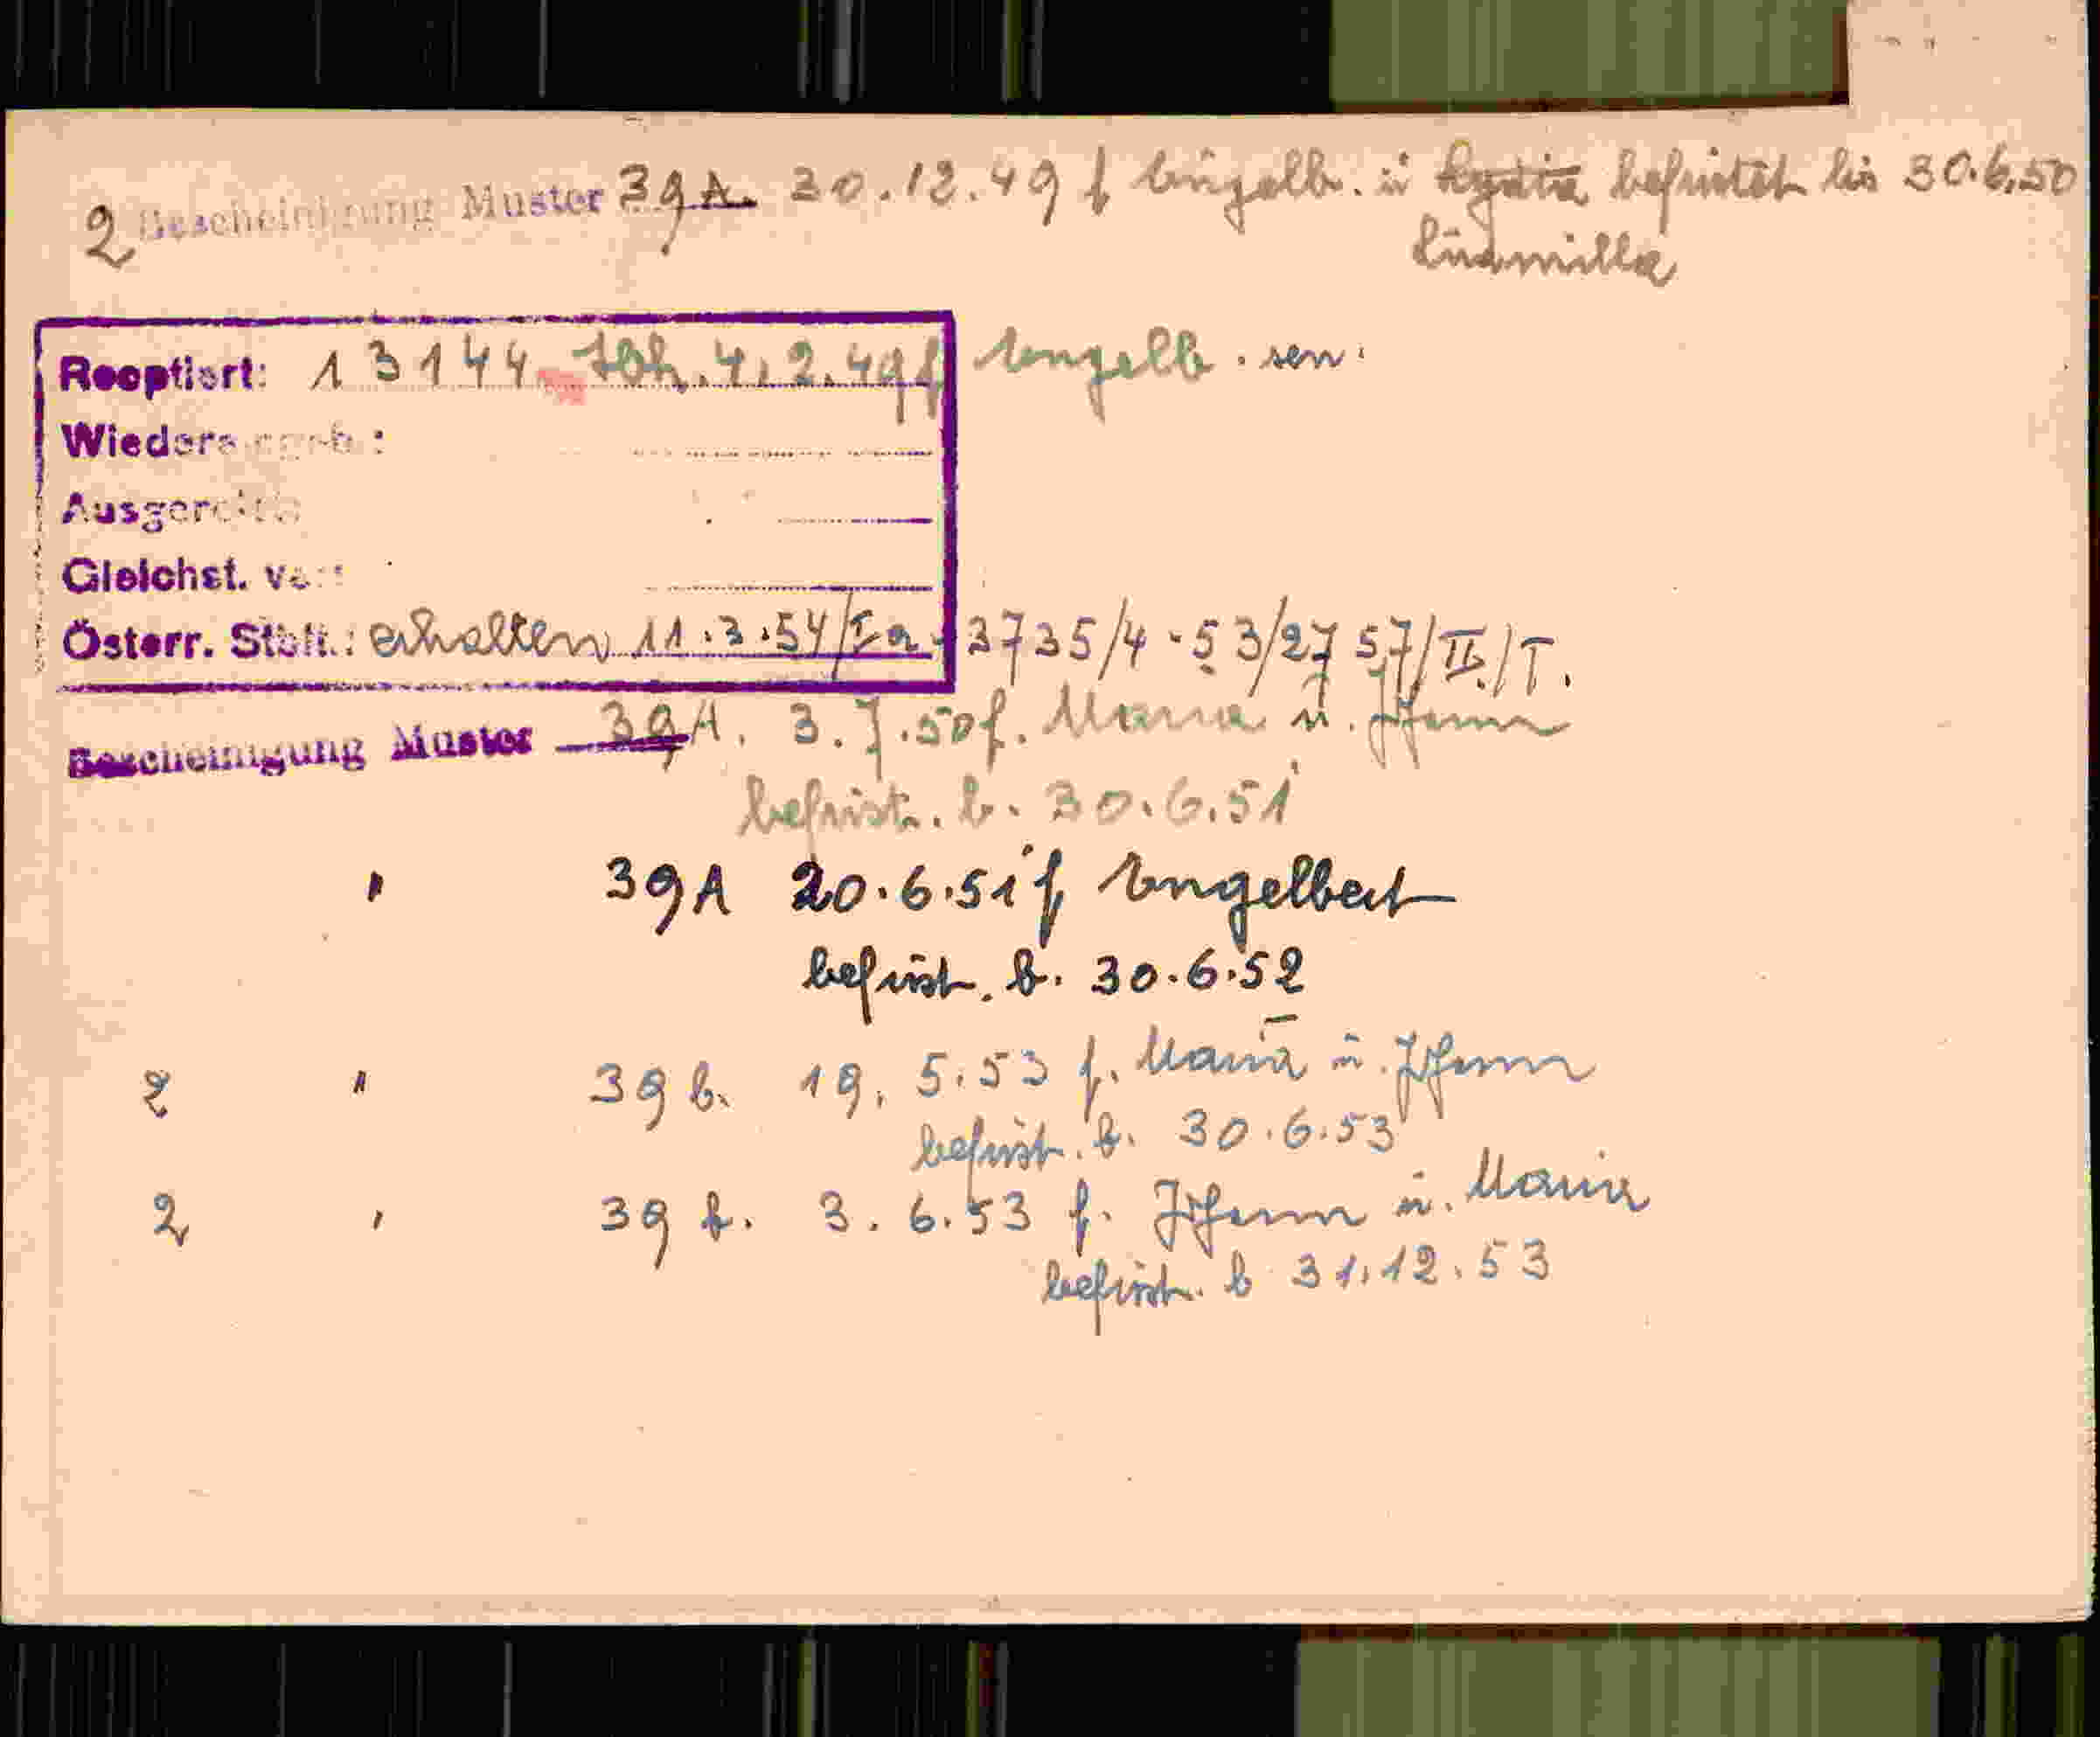 2 Bescheinigung Muster 39A. 30.12.49 f Engelb. u befristet bis 30.6.50
Ludmilla
Reoptiert: 13144 4.2.49 f Engelb. sen.
Wieder
Ausger
Gleichst. v
Österr. Stbft.: erhalten 11.3.54/Ia-3735/4-53/2757/II/T.
Bescheinigung Muster 39A. 3.7.50 f. Maria u. Johann
befrist. b. 30.6.51
" 39A 20.6.51 f Engelbert
befrist. b. 30.6.52
2 " 39 b. 19.5.53 f. Maria u. Johann
befrist. b. 30.6.53
2 " 39 b. 3.6.53 f. Johann u. Maria
befrist. b 31.12.53